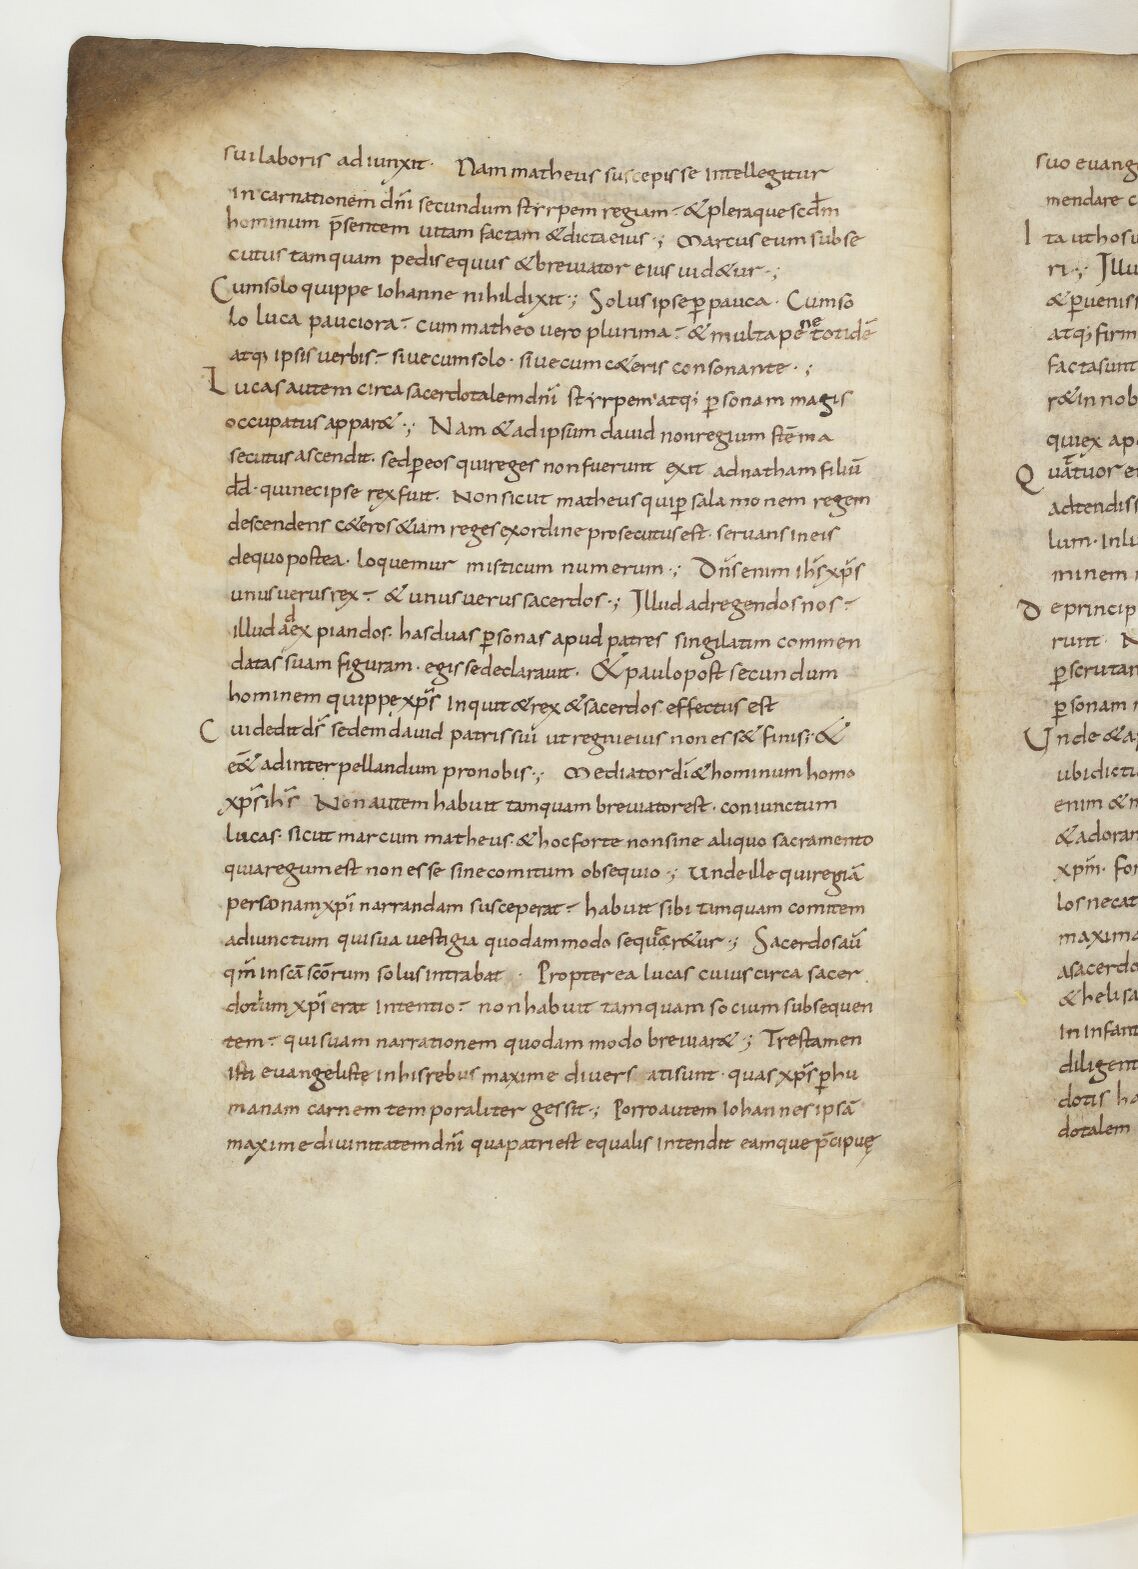 sui laboris adiunxit· Nam matheus suscepisse intellegitur
incarnationem dn̄i secundum styrpem regiam· & pleraque scdm̄
hominum p̄sentem uitam factam & dicta eius·; Marcus eum subse
cutus tamquam pedisequus & breuiator eius uid&ur·;
Cum solo quippe Iohanne nihil dixit·; Solus ipse p̱ pauca· Cum so
lo luca pauciora· cum matheo uero plurima· & multa pene totidē
atq; ipsis uerbis· siue cum solo· siue cum c&eris consonante·;
Lucas autem circa sacerdotalem dn̄i styrpem atq; p̱sonam magis
occupatus appar&·; Nam & ad ipsum dauid non regium stēma
secutus ascendit· sed p̱ eos qui reges non fuerunt exit ad natham filiū
dd̄· qui nec ipse rex fuit· Non sicut matheus qui p̱ salamonem regem
descendens c&eros &iam reges ex ordine prosecutus est· seruans in eis
de quo postea· loquemur misticum numerum·; Dn̄s enim ih̄s xp̄s
unus uerus rex· & unus uerus sacerdos·; Illud ad regendos nos·
illud ad expiandos· has duas p̱sonas apud patres singilatim commen
datas suam figuram· egisse declarauit· & paulo post secundum
hominem quippe xp̄s inquit & rex & sacerdos effectus est
Cui dedit ds̄ sedem dauid patris sui ut regni eius non ess& finis·; &
ēē& ad interpellandum pro nobis·; Mediator dī & hominum homo
xp̄s ih̄s Non autem habuit tamquam breuiatorest· coniunctum
lucas· sicut marcum matheus· & hoc forte non sine aliquo sacramento
quia regum est non esse sine comitum obsequio·; Unde ille qui regiā
personam xp̄i narrandam susceperat· habuit sibi tamquam comitem
adiunctum qui sua uestigia quodammodo sequer&ur·; Sacerdos aū
qm̄ in scā scōrum solus intrabat· Propterea lucas cuius circa sacer
dotium xp̄i erat intentio· non habuit tamquam socium subsequen
tem· qui suam narrationem quodammodo breuiar&·; Tres tamen
isti euangeliste in his rebus maxime diuersati sunt· quas xp̄s p̱ hu
manam carnem temporaliter gessit·; Porro autem Iohannes ipsā
maxime diuinitatem dn̄i qua patri est equalis intendit eamque p̄cipuę
suo euang
mendare c
Ita ut hos u
ri·; Illu
& p̱uenis
atq; firm
facta sunt
r& in nob
qui ex apo
Quattuor e
adtendiss
lum· in lu
minem
De princip
runt· N
p̱scrutan
p̱sonam
Unde & a
ubi dictu
enim & m
& adoran
xpm̄· for
los necat
maxima
a sacerdo
& helisa
in infant
diligent
dotis ha
dotalem